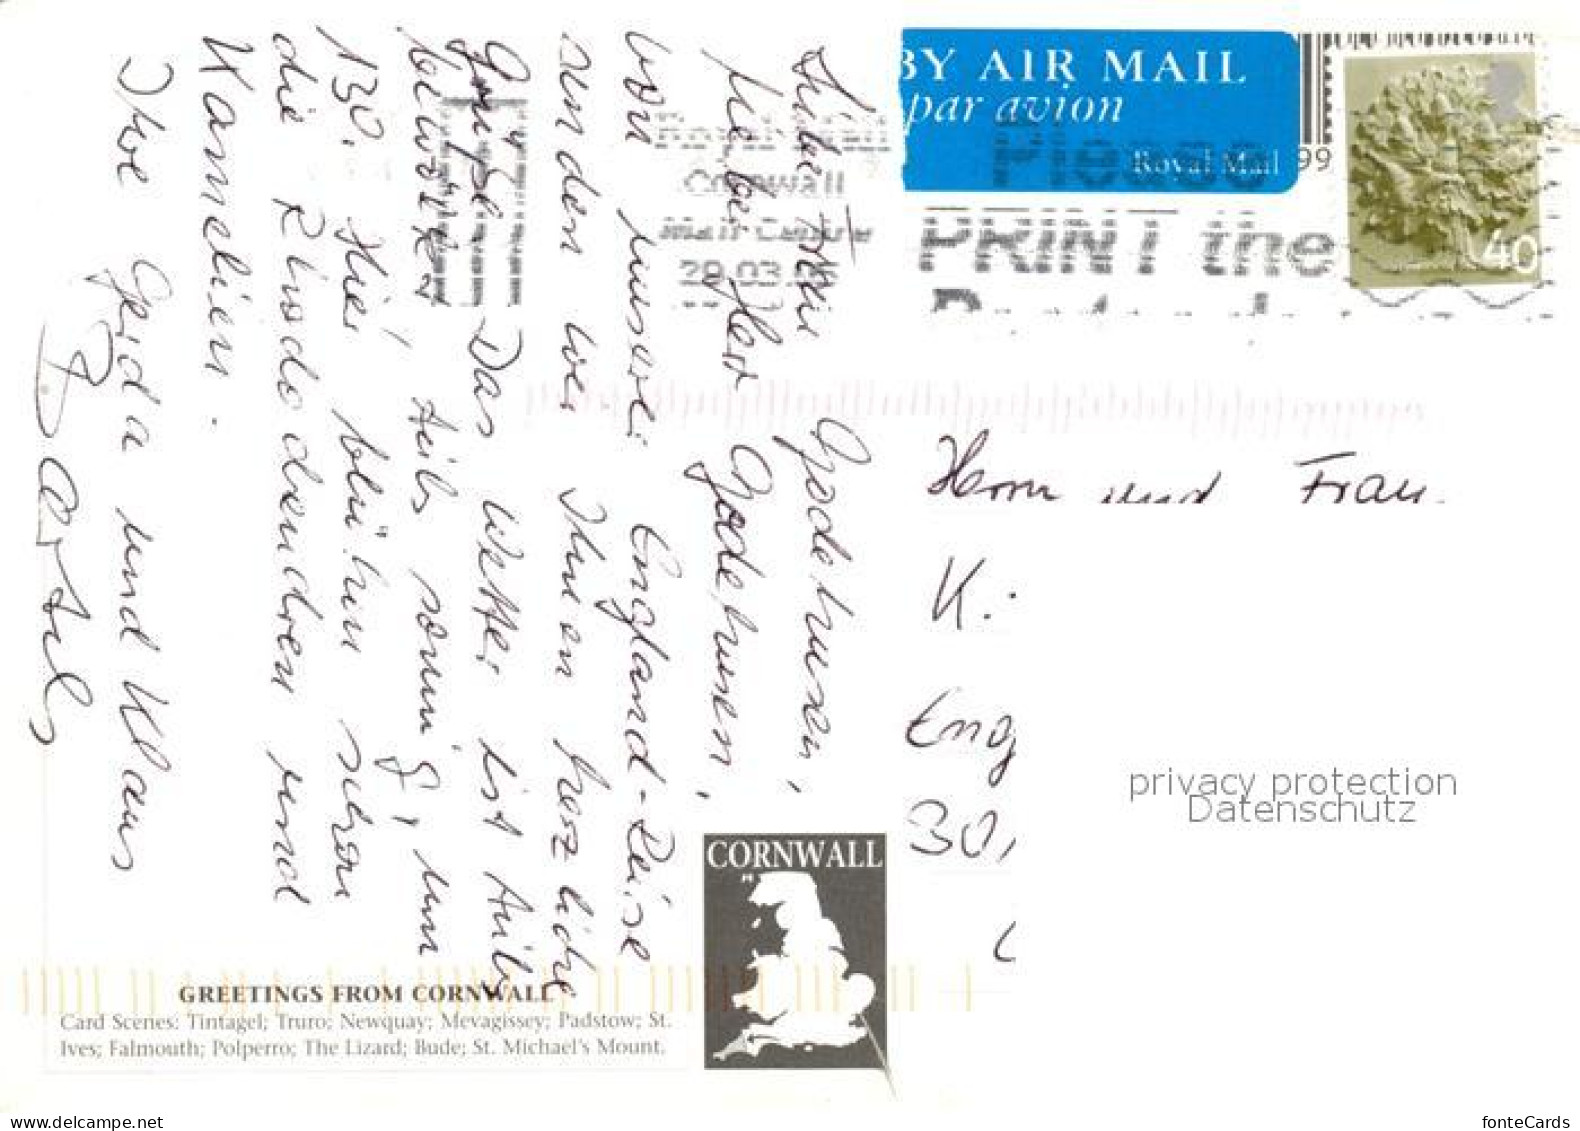 Liebe Frau Godehusen,
lieber Herr Godehusen,
von unserer England-Reise
senden wir Ihnen herzliche
Grüße. Das Wetter ist teils
bewölkt, teils sonnig, um
13°. Hier blühen schon
die Rhododendren und
Kamelien.
Ihre Gerda und Klaus
Bartels
GREETINGS FROM CORNWALL
Card Scenes: Tintagel; Truro; Newquay; Mevagissey; Padstow; St.
Ives; Falmouth; Polperro; The Lizard; Bude; St. Michael's Mount.
CORNWALL
Royal Mail
Cornwall
Mail Centre
BY AIR MAIL
par avion
Royal Mail
99
Please
PRINT the
40
Herrn und Frau
K.
Eng
30
privacy protection
Datenschutz
www.delcampe.net
fonteCards